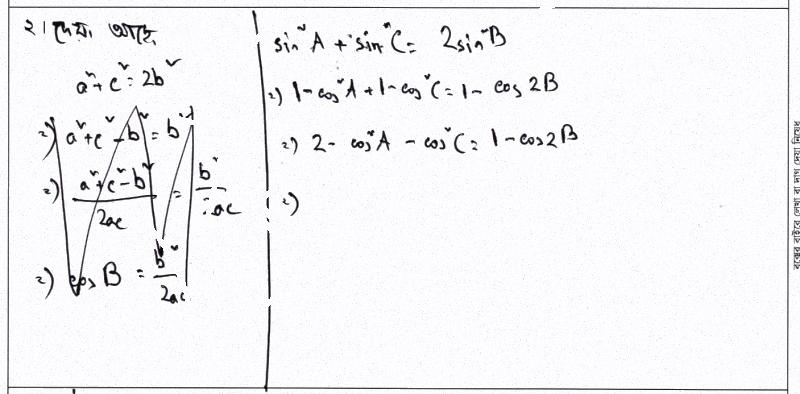 ২। দেয়া আছে
a² + c² = 2b²
⇒) a² + c² - b² = b²
⇒) (a² + c² - b²)/2ac = b²/2ac
⇒) cos B = b²/2ac
sin²A + sin²C = 2sin²B
⇒) 1 - cos²A + 1 - cos²C = 1 - cos 2B
⇒) 2 - cos²A - cos²C = 1 - cos2B
⇒)
বক্সের বাইরে লেখা বা দাগ দেয়া নিষেধ